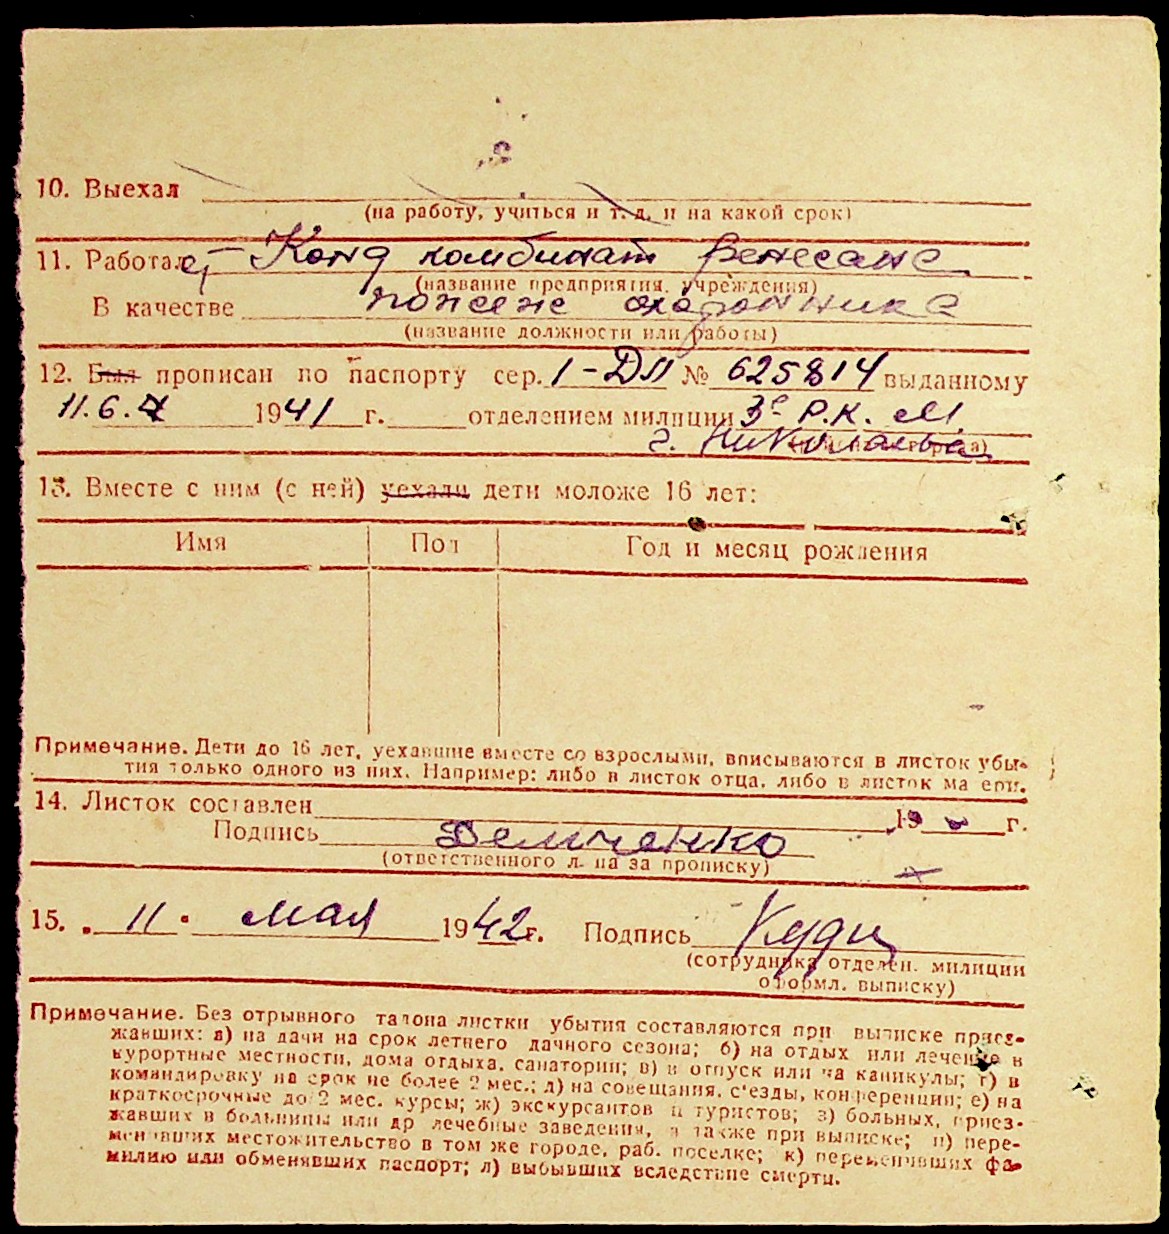 10. Выехал
(на работу, учиться и т. д. и на какой срок)
11. Работает Конд комбинат
(название предприятия, учреждения)
В качестве пожеж охоронника
(название должности или работы)
12. Был прописан по паспорту сер. 1-ДП № 625814 выданному
11.6. 1941 г. отделением милиции 3е Р.К. М.
г. Николаева
13. Вместе с ним (с ней) уехали дети моложе 16 лет:
Имя Пол Год и месяц рождения
Примечание. Дети до 16 лет, уехавшие вместе со взрослыми, вписываются в листок убы-
тия только одного из них. Например: либо в листок отца, либо в листок матери.
14. Листок составлен 19 г.
Подпись Демченко
(ответственного л-ца за прописку)
15. „ 11 " мая 1942 г. Подпись
(сотрудника отделен. милиции
оформл. выписку)
Примечание. Без отрывного талона листки убытия составляются при выписке приез-
жавших: а) на дачи на срок летнего дачного сезона; б) на отдых или лечение в
курортные местности, дома отдыха, санатории; в) в отпуск или на каникулы; г) в
командировку на срок не более 2 мес.; д) на совещания, с'езды, конференции; е) на
краткосрочные до 2 мес. курсы; ж) экскурсантов и туристов; з) больных, приез-
жавших в больницы или др лечебные заведения, а также при выписке; и) пере-
менивших местожительство в том же городе, раб. поселке; к) переменивших фа-
милию или обменявших паспорт; л) выбывших вследствие смерти.